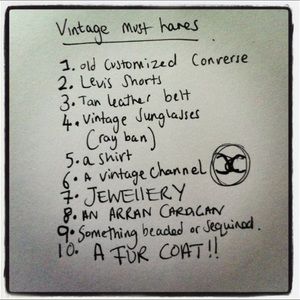 Vintage must haves
1. old customized Converse
2. Levis shorts
3. Tan leather belt
4. Vintage Sunglasses
(ray ban)
5. a shirt
6. A vintage channel
7. JEWELLERY
8. AN ARRAN CARDIGAN
9. Something beaded or sequined.
10. A FUR COAT!!